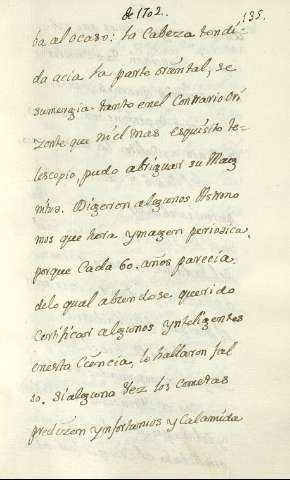 de 1702.
135.
ba al ocaso: la Cabeza tendi-
da acia la parte oriental, se
sumergia tanto en el Contrario Ori
zonte que ni el mas esquisito te-
lescopio, pudo abriguar su Mag
nitud. Digeron algunos Astrono
mos que hera ymagen periodica,
porque Cada 60. años parecia
de lo qual abiendose querido
Certificar algunos ynteligentes
en esta Ciencia, lo hallaron fal
so. Si alguna vez los cometas
predizen ynfortunios y Calamida